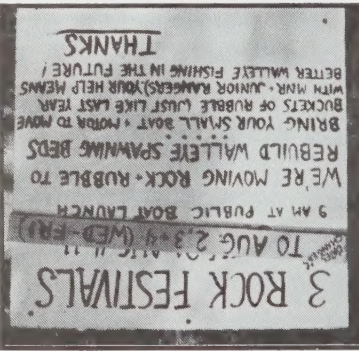 3 ROCK FESTIVALS
TO AUG 2, 3, + 4 (WED-FRI)
9 AM AT PUBLIC BOAT LAUNCH
WE'RE MOVING ROCK + RUBBLE TO
REBUILD WALLEYE SPAWNING BEDS
BRING YOUR SMALL BOAT + MOTOR TO MOVE
BUCKETS OF RUBBLE (JUST LIKE LAST YEAR
WITH MNR + JUNIOR RANGERS), YOUR HELP MEANS
BETTER WALLEYE FISHING IN THE FUTURE!
THANKS